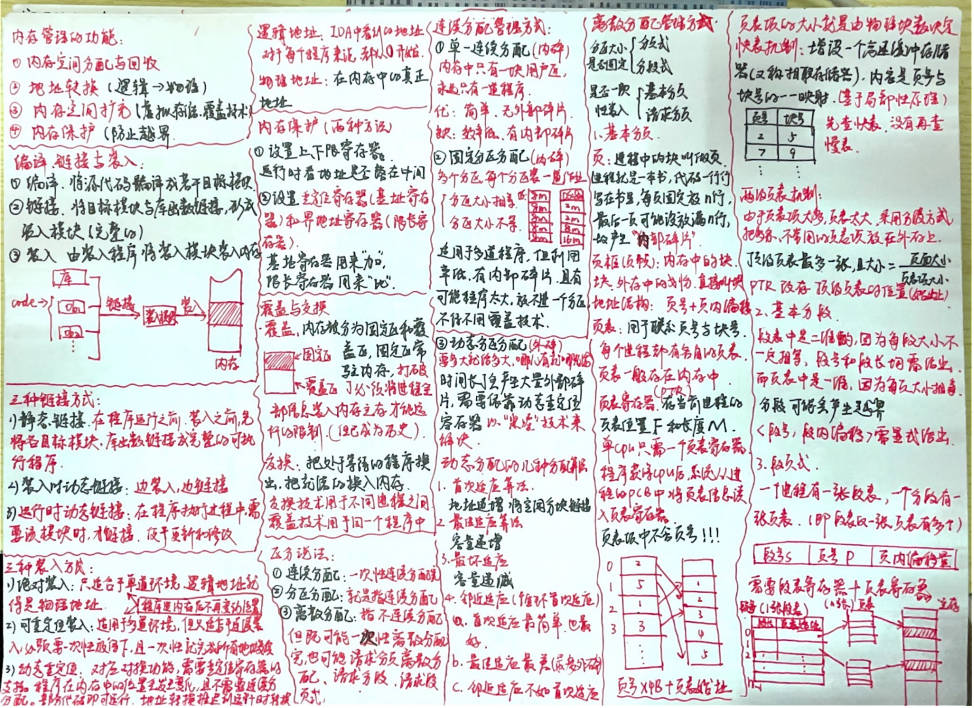 内存管理的功能:
① 内存空间分配与回收
② 地址转换 (逻辑→物理)
③ 内存空间扩充 (虚拟存储、覆盖技术)
④ 内存保护 (防止越界)
编译、链接与装入:
① 编译. 将源代码编译成若干目标模块
② 链接. 将目标模块与库函数链接,形成
装入模块 (完整的)
③ 装入 由装入程序将装入模块装入内存
库
code
obj
链接
装入模块
装入
obj2
内存
三种链接方式:
1) 静态链接. 在程序运行之前. 装入之前,先
将各目标模块、库函数链接成完整的可执
行程序.
2) 装入时动态链接: 边装入,边链接
3) 运行时动态链接: 在程序执行过程中需
要该模块时,才链接, 便于更新和修改
三种装入方式:
1) 绝对装入: 只适合于单道环境, 逻辑地址就
得是物理地址.
程序进内存后不再变动位置
2) 可重定位装入: 适用于多道环境,
3) 动态重定位.
逻辑地址: IDA中看见的地址
对于每个程序来说, 都从0开始
物理地址: 在内存中的真正
地址
内存保护 (两种方法)
① 设置上下限寄存器.
运行时看地址是否落在中间
② 设置重定位寄存器(基址寄存
器)和界地址寄存器(限长寄
存器).
基址寄存器用来“加”,
限长寄存器用来“比”.
覆盖与交换
覆盖: 内存被分为固定区和覆
盖区, 固定区常
驻内存, 打破
了必须将进程全
部信息装入内存之后才能运
行的限制. (但已成为历史).
固定区
覆盖区
交换: 把处于等待的程序换
出, 把就绪的换入内存.
交换技术用于不同进程之间
覆盖技术用于同一个程序中
区分说法:
① 连续分配: 一次性连续分配完
② 分区分配: 就是指连续分配
③ 离散分配: 指不连续分配
但既可能一次性离散分配
完,也可能请求分页离散分
配、请求分段、请求段
页式
连续分配管理方式:
① 单一连续分配 (内碎)
内存中只有一块用户区,
永远只有一道程序.
优: 简单, 无外部碎片
缺: 效率低, 有内部碎片
② 固定分区分配 (内碎)
多个分区, 每个分区装一道作业
分区大小相等
分区大小不等.
适用于多道程序, 但利用
率低, 有内部碎片, 且有
可能程序太大, 放不进一个分区
不得不用覆盖技术.
③ 动态分区分配 (外碎)
时间长了会产生大量外部碎
片, 需要依靠动态重定位
寄存器 以“紧凑”技术来
解决.
动态分配的几种分配算法
1. 首次适应算法.
地址递增 将空闲分块链接
2. 最佳适应算法
容量递增
3. 最坏适应
容量递减
4. 邻近适应 (循环首次适应)
a. 首次适应最简单也最
好.
b. 最佳适应最差(很多外碎)
c. 邻近适应不如首次适应
离散分配管理方式
分区大小
是否固定
分页式
分段式
是否一次
性装入
基本分页
请求分页
1. 基本分页
页: 进程中的块叫做页.
进程就是一本书, 代码一行行
写在书里, 每页固定放n行,
最后一页可能没放满n行,
故产生“内部碎片”
页框(页帧): 内存中的块
块: 外存中的划分, 直接叫块
地址结构: 页号+页内偏移
页表: 用于联系页号与块号
每个进程都有各自的页表.
页表一般存在内存中
(PTR)
页表寄存器: 存当前进程的
页表位置F和长度M.
单cpu只需一个页表寄存器
程序获得cpu后, 系统从进
程的PCB中将页表信息读
入页表寄存器
页表项中不含页号!!!
页号×4B+页表始址
页表项的大小就是由物理块数决定
快表机制: 增设一个高速缓冲存储
器(又称相联存储器). 内容是页号与
块号的一一映射. (基于局部性原理)
页号 块号
2 5
7 9
先查快表, 没有再查
慢表.
两级页表机制:
由于页表项太多, 页表太大, 采用分级方式
把多余、不常用的页表项放在外存上.
顶级页表最多一张, 且大小=页面大小/页表项大小
PTR 改存 顶级页表的位置
2. 基本分段.
段表中是二维的, 因为每段大小不
一定相等, 段号和段长均需给出.
而页表中是一维, 因为每页大小相等
分段可能会产生越界
<段号, 段内偏移> 需显式给出.
3. 段页式
一个进程有一张段表, 一个分段有一
张页表. (即段表仅一张, 页表有多个)
段号S 页号P 页内偏移量
需要段表寄存器+页表寄存器